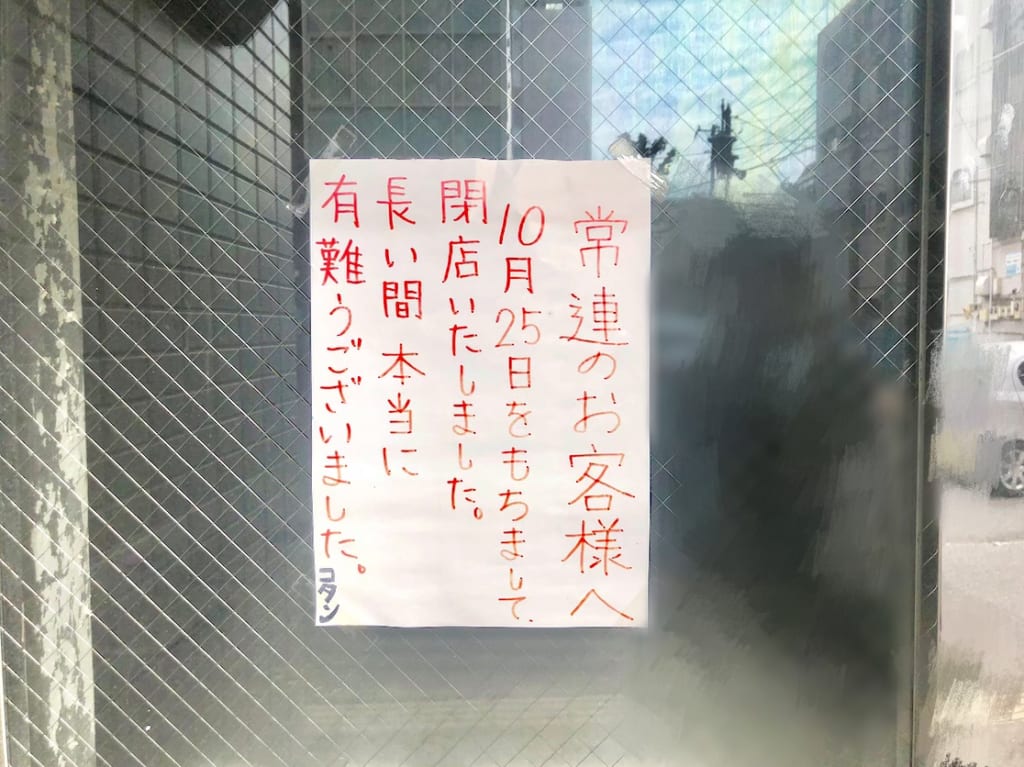 常連のお客様へ
10月25日をもちまして、
閉店いたしました。
長い間 本当に
有難うございました。
コタン